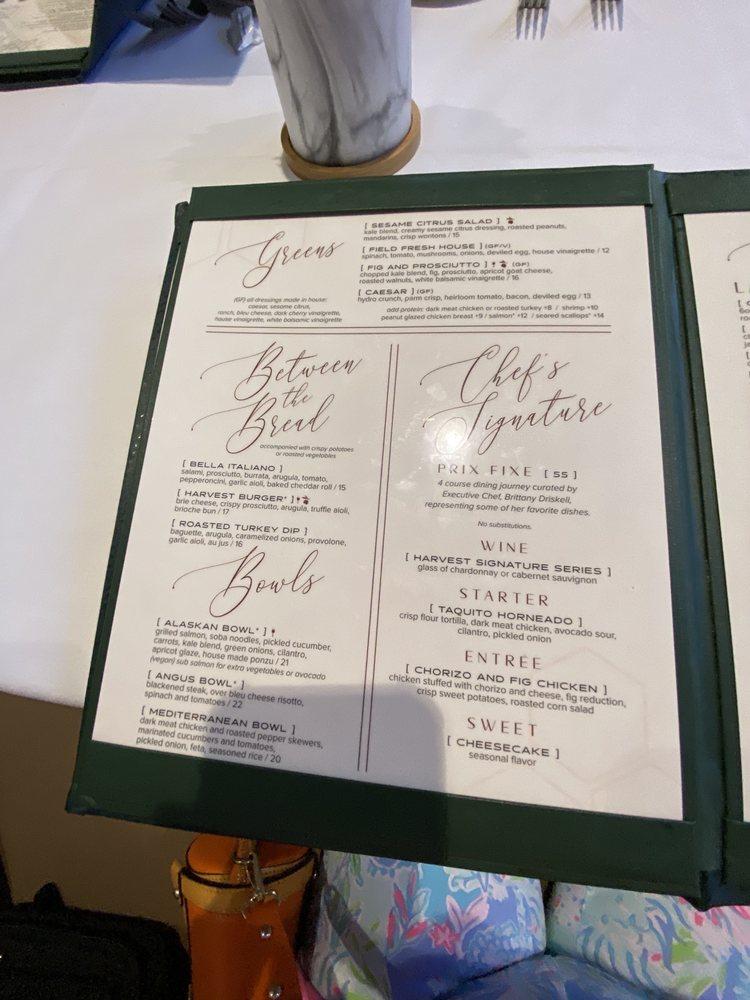 Greens
(GF) all dressings made in house:
caesar, sesame citrus,
ranch, bleu cheese, dark cherry vinaigrette,
house vinaigrette, white balsamic vinaigrette
[ SESAME CITRUS SALAD ]
kale blend, creamy sesame citrus dressing, roasted peanuts,
mandarins, crisp wontons / 15
[ FIELD FRESH HOUSE ] (GF/V)
spinach, tomato, mushrooms, onions, deviled egg, house vinaigrette / 12
[ FIG AND PROSCIUTTO ] (GF)
chopped kale blend, fig, prosciutto, apricot goat cheese,
roasted walnuts, white balsamic vinaigrette / 16
[ CAESAR ] (GF)
hydro crunch, parm crisp, heirloom tomato, bacon, deviled egg / 13
add protein: dark meat chicken or roasted turkey +8 / shrimp +10
peanut glazed chicken breast +9 / salmon* +12 / seared scallops* +14
Between
the
Bread
accompanied with crispy potatoes
or roasted vegetables
[ BELLA ITALIANO ]
salami, prosciutto, burrata, arugula, tomato,
pepperoncini, garlic aioli, baked cheddar roll / 15
[ HARVEST BURGER* ]
brie cheese, crispy prosciutto, arugula, truffle aioli,
brioche bun / 17
[ ROASTED TURKEY DIP ]
baguette, arugula, caramelized onions, provolone,
garlic aioli, au jus / 16
Bowls
[ ALASKAN BOWL* ]
grilled salmon, soba noodles, pickled cucumber,
carrots, kale blend, green onions, cilantro,
apricot glaze, house made ponzu / 21
(vegan) sub salmon for extra vegetables or avocado
[ ANGUS BOWL* ]
blackened steak, over bleu cheese risotto,
spinach and tomatoes / 22
[ MEDITERRANEAN BOWL ]
dark meat chicken and roasted pepper skewers,
marinated cucumbers and tomatoes,
pickled onion, feta, seasoned rice / 20
Chef's
Signature
PRIX FIXE [ 55 ]
4 course dining journey curated by
Executive Chef, Brittany Driskell,
representing some of her favorite dishes.
No substitutions.
WINE
[ HARVEST SIGNATURE SERIES ]
glass of chardonnay or cabernet sauvignon
STARTER
[ TAQUITO HORNEADO ]
crisp flour tortilla, dark meat chicken, avocado sour,
cilantro, pickled onion
ENTRÉE
[ CHORIZO AND FIG CHICKEN ]
chicken stuffed with chorizo and cheese, fig reduction,
crisp sweet potatoes, roasted corn salad
SWEET
[ CHEESECAKE ]
seasonal flavor